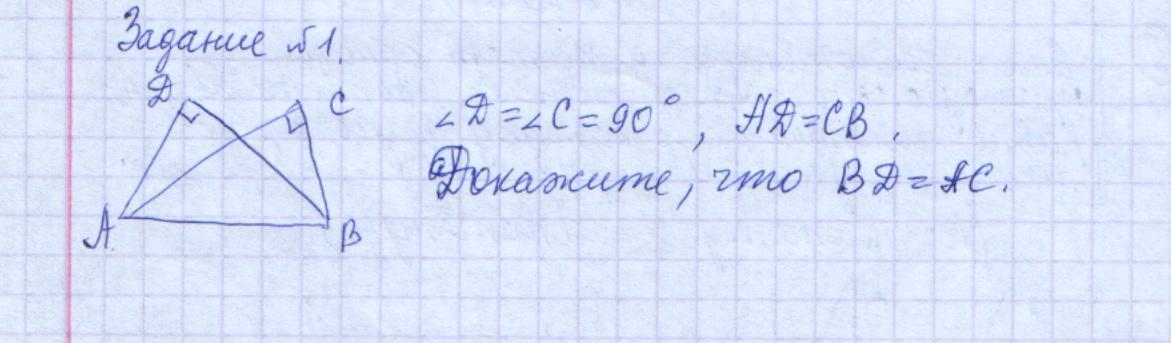 Задание №1.
D C
∠D=∠C=90°, AD=CB.
Докажите, что BD=AC.
A B